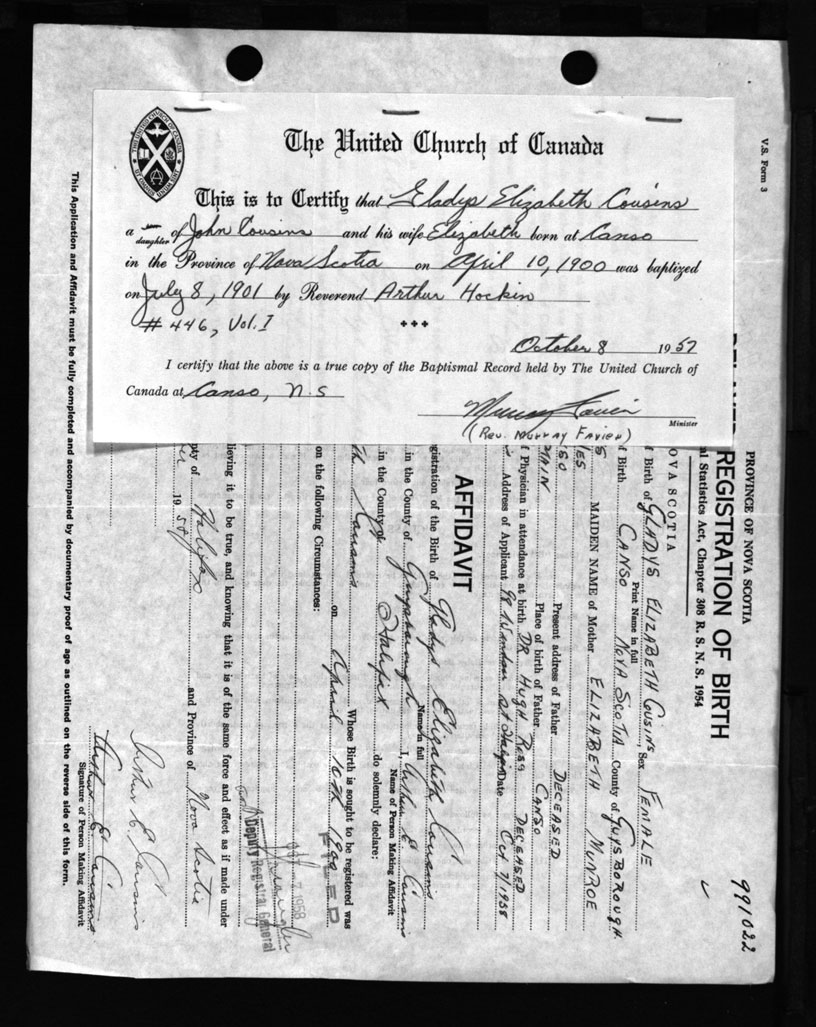 The United Church of Canada
This is to Certify that Gladys Elizabeth Cousins
a daughter of John Cousins and his wife Elizabeth born at Canso
in the Province of Nova Scotia on April 10, 1900 was baptized
on July 8, 1901 by Reverend Arthur Hockin
# 446, Vol. I
October 8 1957
I certify that the above is a true copy of the Baptismal Record held by The United Church of
Canada at Canso, N.S
Minister
(Rev. Murray
V.S. Form 3
991022
PROVINCE OF NOVA SCOTIA
REGISTRATION OF BIRTH
al Statistics Act, Chapter 308 R. S. N. S. 1954
OVA SCOTIA
f Birth of GLADYS ELIZABETH COUSINS, Sex FEMALE
Print Name in full
f Birth CANSO NOVA SCOTIA County of GUISBOROUGH
MAIDEN NAME of Mother ELIZABETH MUNROE
Present address of Father DECEASED
Place of birth of Father CANSO
f Physician in attendance at birth DR HUGH ROSS DECEASED
Address of Applicant St Date Oct 7/1958
AFFIDAVIT
gistration of the Birth of Gladys Elizabeth Cousins
Name in full
in the County of Guysborough I, Arthur E. Cousins
Name of Person Making Affidavit
in the County of Halifax do solemnly declare:
Whose Birth is sought to be registered was
Cousins on April 10th 1900
on the following Circumstances:
lieving it to be true, and knowing that it is of the same force and effect as if made under
nty of Halifax and Province of Nova Scotia
1958
7 1958
Deputy Registrar General
Arthur E. Cousins
Arthur E. Cousins
Signature of Person Making Affidavit
This Application and Affidavit must be fully completed and accompanied by documentary proof of age as outlined on the reverse side of this form.